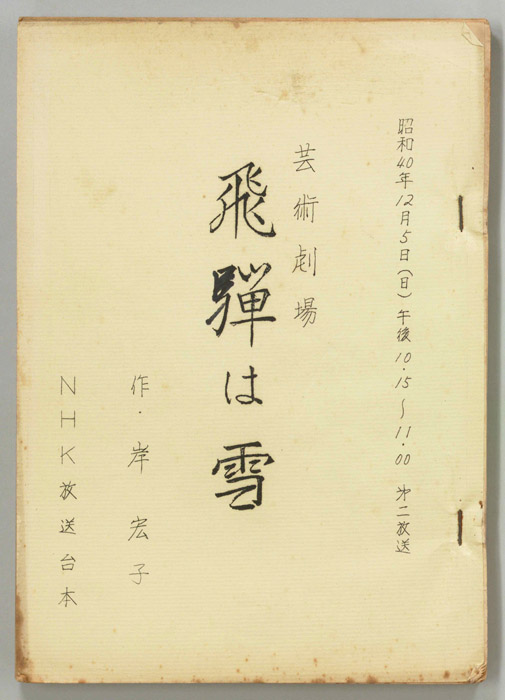 昭和40年12月5日(日)午後10.15〜11.00 第二放送
芸術劇場
飛騨は雪
作・岸宏子
NHK放送台本